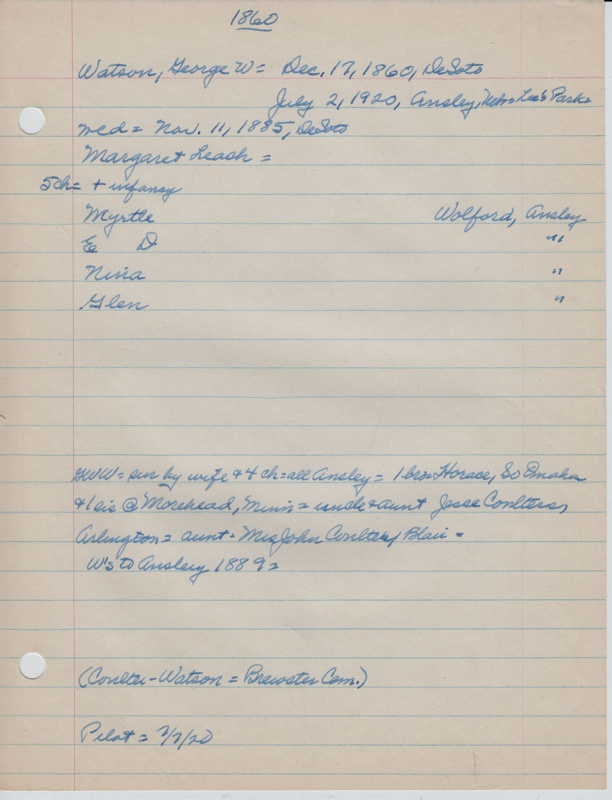 1860
Watson, George W = Dec. 17, 1860, DeSoto
July 2, 1920, Ansley, Neb = Lee's Park =
med = Nov. 11, 1885, DeSoto
Margaret Leach =
5 ch = + infancy
Myrtle Wolford, Ansley
E D "
Nina "
Glen "
GWW = sur by wife & 4 ch = all Ansley = 1 bro = Horace, So Omaha
& 1 sis @ Morehead, Minn = uncle & aunt Jesse Coulters,
Arlington = aunt = Mrs John Coulter, Blair =
W's to Ansley 1889 =
(Coulter-Watson = Brewster Com.)
Pilot = 7/7/20